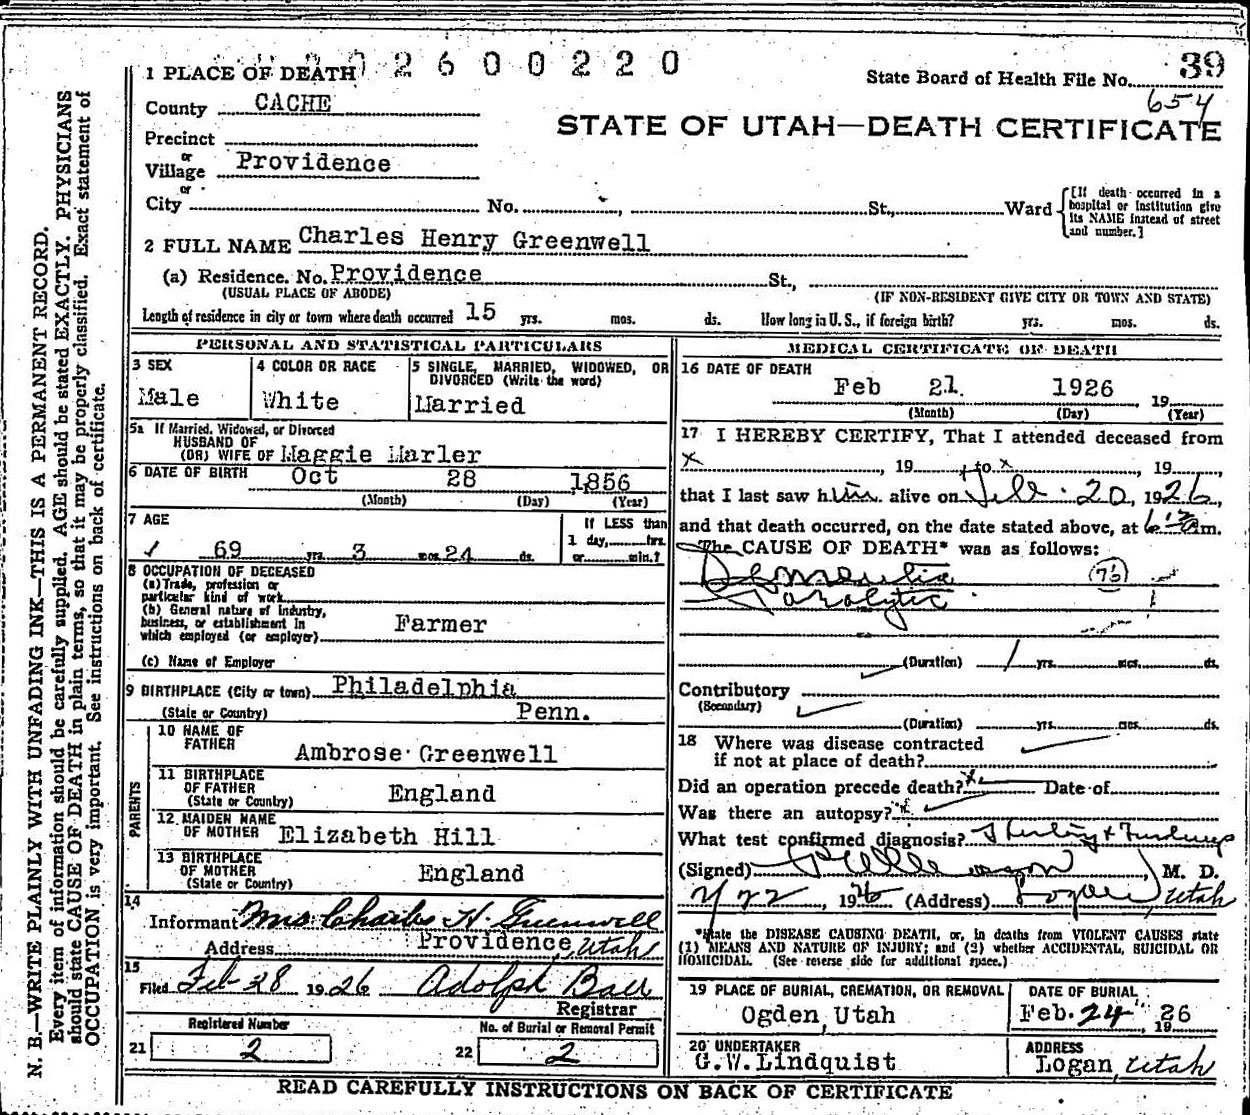 2 6 0 0 2 2 0
39
1 PLACE OF DEATH
State Board of Health File No.
654
County CACHE
STATE OF UTAH—DEATH CERTIFICATE
Precinct
or
Village Providence
or
City No. , St., Ward
[If death occurred in a hospital or institution give its NAME instead of street and number.]
2 FULL NAME Charles Henry Greenwell
(a) Residence. No. Providence St.,
(USUAL PLACE OF ABODE) (IF NON-RESIDENT GIVE CITY OR TOWN AND STATE)
Length of residence in city or town where death occurred 15 yrs. mos. ds. How long in U. S., if foreign birth? yrs. mos. ds.
PERSONAL AND STATISTICAL PARTICULARS
3 SEX
Male
4 COLOR OR RACE
White
5 SINGLE, MARRIED, WIDOWED, OR
DIVORCED (Write the word)
Married
5a If Married, Widowed, or Divorced
HUSBAND OF
(OR) WIFE OF Maggie Marler
6 DATE OF BIRTH Oct 28 1856
(Month) (Day) (Year)
7 AGE
69 yrs. 3 mos. 24 ds.
If LESS than
1 day, hrs.
or min.?
8 OCCUPATION OF DECEASED
(a) Trade, profession or
particular kind of work
(b) General nature of industry,
business, or establishment in
which employed (or employer) Farmer
(c) Name of Employer
9 BIRTHPLACE (City or town) Philadelphia
(State or Country) Penn.
PARENTS
10 NAME OF
FATHER
Ambrose Greenwell
11 BIRTHPLACE
OF FATHER
(State or Country)
England
12 MAIDEN NAME
OF MOTHER Elizabeth Hill
13 BIRTHPLACE
OF MOTHER
(State or Country)
England
14
Informant Mrs Charles H. Greenwell
Address Providence, Utah
15
Filed Feb 28 1926 Adolph Baer
Registrar
Registered Number
21 2
No. of Burial or Removal Permit
22 2
MEDICAL CERTIFICATE OF DEATH
16 DATE OF DEATH
Feb 21. 1926 19
(Month) (Day) (Year)
17 I HEREBY CERTIFY, That I attended deceased from
x , 19 to x , 19 ,
that I last saw him alive on Feb. 20, 1926,
and that death occurred, on the date stated above, at m.
The CAUSE OF DEATH* was as follows:
Dementia
Paralytic
(Duration) 1 yrs. mos. ds.
Contributory
(Secondary)
(Duration) yrs. mos. ds.
18 Where was disease contracted
if not at place of death?
Did an operation precede death? x Date of
Was there an autopsy? x
What test confirmed diagnosis?
(Signed) , M. D.
2/22, 1926 (Address) Logan, Utah
*State the DISEASE CAUSING DEATH, or, in deaths from VIOLENT CAUSES state
(1) MEANS AND NATURE OF INJURY; and (2) whether ACCIDENTAL, SUICIDAL OR
HOMICIDAL. (See reverse side for additional space.)
19 PLACE OF BURIAL, CREMATION, OR REMOVAL
Ogden, Utah
DATE OF BURIAL
Feb. 24 , 19 26
20 UNDERTAKER
G.W. Lindquist
ADDRESS
Logan, Utah
READ CAREFULLY INSTRUCTIONS ON BACK OF CERTIFICATE
N. B.—WRITE PLAINLY WITH UNFADING INK—THIS IS A PERMANENT RECORD.
Every item of information should be carefully supplied. AGE should be stated EXACTLY. PHYSICIANS
should state CAUSE OF DEATH in plain terms, so that it may be properly classified. Exact statement of
OCCUPATION is very important. See instructions on back of certificate.